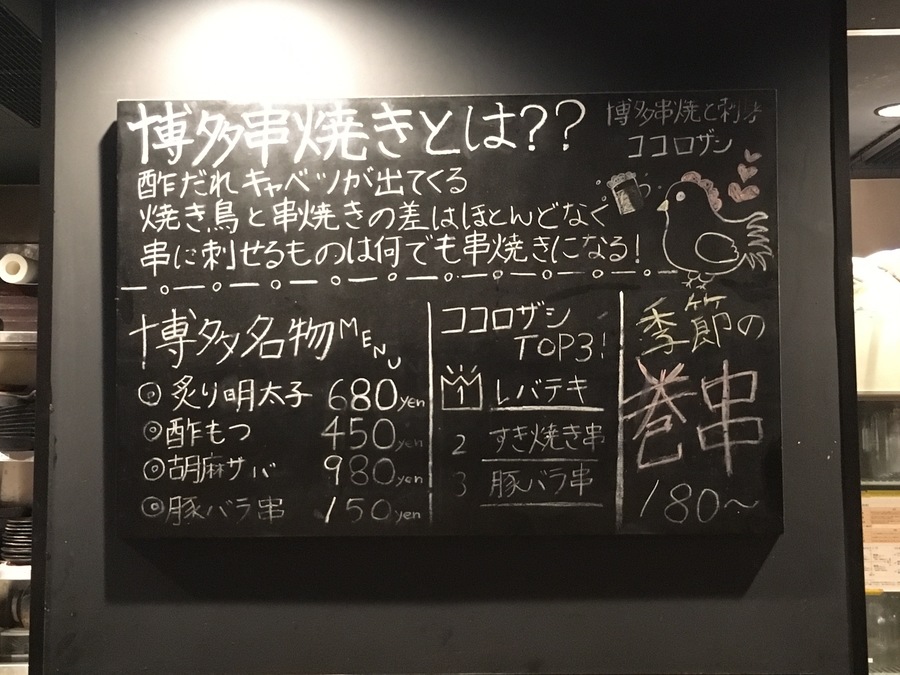 博多串焼きとは??
博多串焼と刺身
ココロザシ
酢だれキャベツが出てくる
焼き鳥と串焼きの差はほとんどなく
串に刺せるものは何でも串焼きになる!
博多名物MENU
◎炙り明太子 680yen
◎酢もつ 450yen
◎胡麻サバ 980yen
◎豚バラ串 150yen
ココロザシ
TOP3!
1 レバテキ
2 すき焼き串
3 豚バラ串
季節の
巻串
180〜